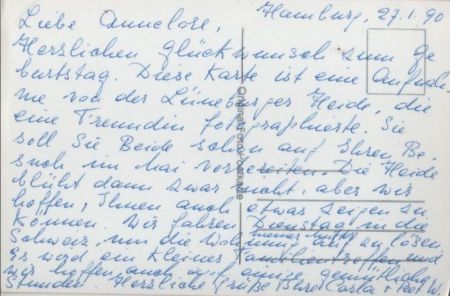 Hamburg, 27.1.90
Liebe Annelore,
Herzlichen Glückwunsch zum Ge
burtstag. Diese Karte ist eine Aufnah-
me von der Lüneburger Heide, die
eine Freundin fotographierte. Sie
soll Sie Beide schon auf Ihren Be-
such im Mai vorbereiten. Die Heide
blüht dann zwar nicht, aber wir
hoffen, Ihnen auch etwas zeigen zu
können. Wir fahren Dienstag in die
Schweiz, um die Wohnung auf zu lösen
meiner Mutter
Es wird ein kleines Familientreffen und
wir hoffen auch auf einige gemütliche
Stunden. Herzliche Grüße Ihre Carla +
Original-Foto-Postkarte